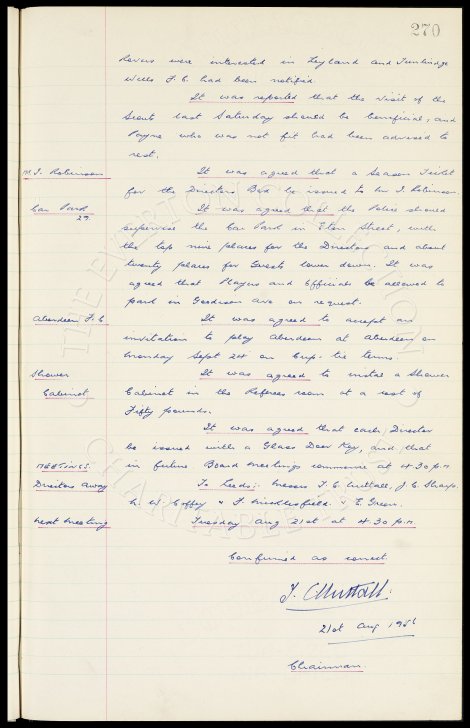 270
Rovers were interested in Leyland and Tunbridge
Wells F.C. had been notified.
It was reported that the visit of the
Scouts last Saturday should be beneficial, and
Payne who was not fit had been advised to
rest.
Mr. I. Robinson It was agreed that a Season Ticket
for the Directors Box be issued to Mr I. Robinson.
Car Park It was agreed that the Police should
29. supervise the Car Park in Eton Street, with
the top nine places for the Directors and about
twenty places for Guests lower down. It was
agreed that Players and Officials be allowed to
park in Goodison Ave on request.
Aberdeen F.C. It was agreed to accept an
invitation to play Aberdeen at Aberdeen on
Monday Sept 24 on Cup-tie terms.
Shower It was agreed to instal a Shower
Cabinet Cabinet in the Referees room at a cost of
Fifty pounds.
It was agreed that each Director
be issued with a Glass Door Key, and that
MEETINGS. in future Board meetings commence at 4.30 p.m.
Directors Away To Leeds:- Messrs T.C. Nuttall, J.C. Sharp,
C. W. Coffey & F. Micklesfield. E. Green.
Next Meeting Tuesday Aug 21st at 4.30 p.m.
Confirmed as correct
T. C Nuttall.
21st Aug 1956
Chairman.
THE EVERTON COLLECTION
CHARITABLE TRUST